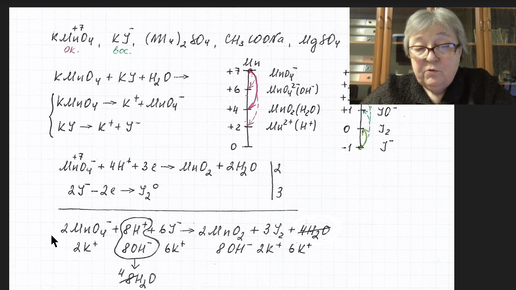 +7
KMnO₄, KJ⁻, (NH₄)₂SO₄, CH₃COONa, MgSO₄
ок. вос.
KMnO₄ + KJ + H₂O →
KMnO₄ → K⁺ + MnO₄⁻
KJ → K⁺ + J⁻
Mn
+7 MnO₄⁻
+6 MnO₄²⁻(OH⁻)
+4 MnO₂(H₂O)
+2 Mn²⁺(H⁺)
0
+1 JO⁻
0 J₂
-1 J⁻
MnO₄⁻ + 4H⁺ + 3e → MnO₂ + 2H₂O | 2
2J⁻ - 2e → J₂⁰ | 3
2MnO₄⁻ + 8H⁺ + 6J⁻ → 2MnO₂ + 3J₂ + 4H₂O
2K⁺ 8OH⁻ 6K⁺ 8OH⁻ 2K⁺ 6K⁺
4 8H₂O